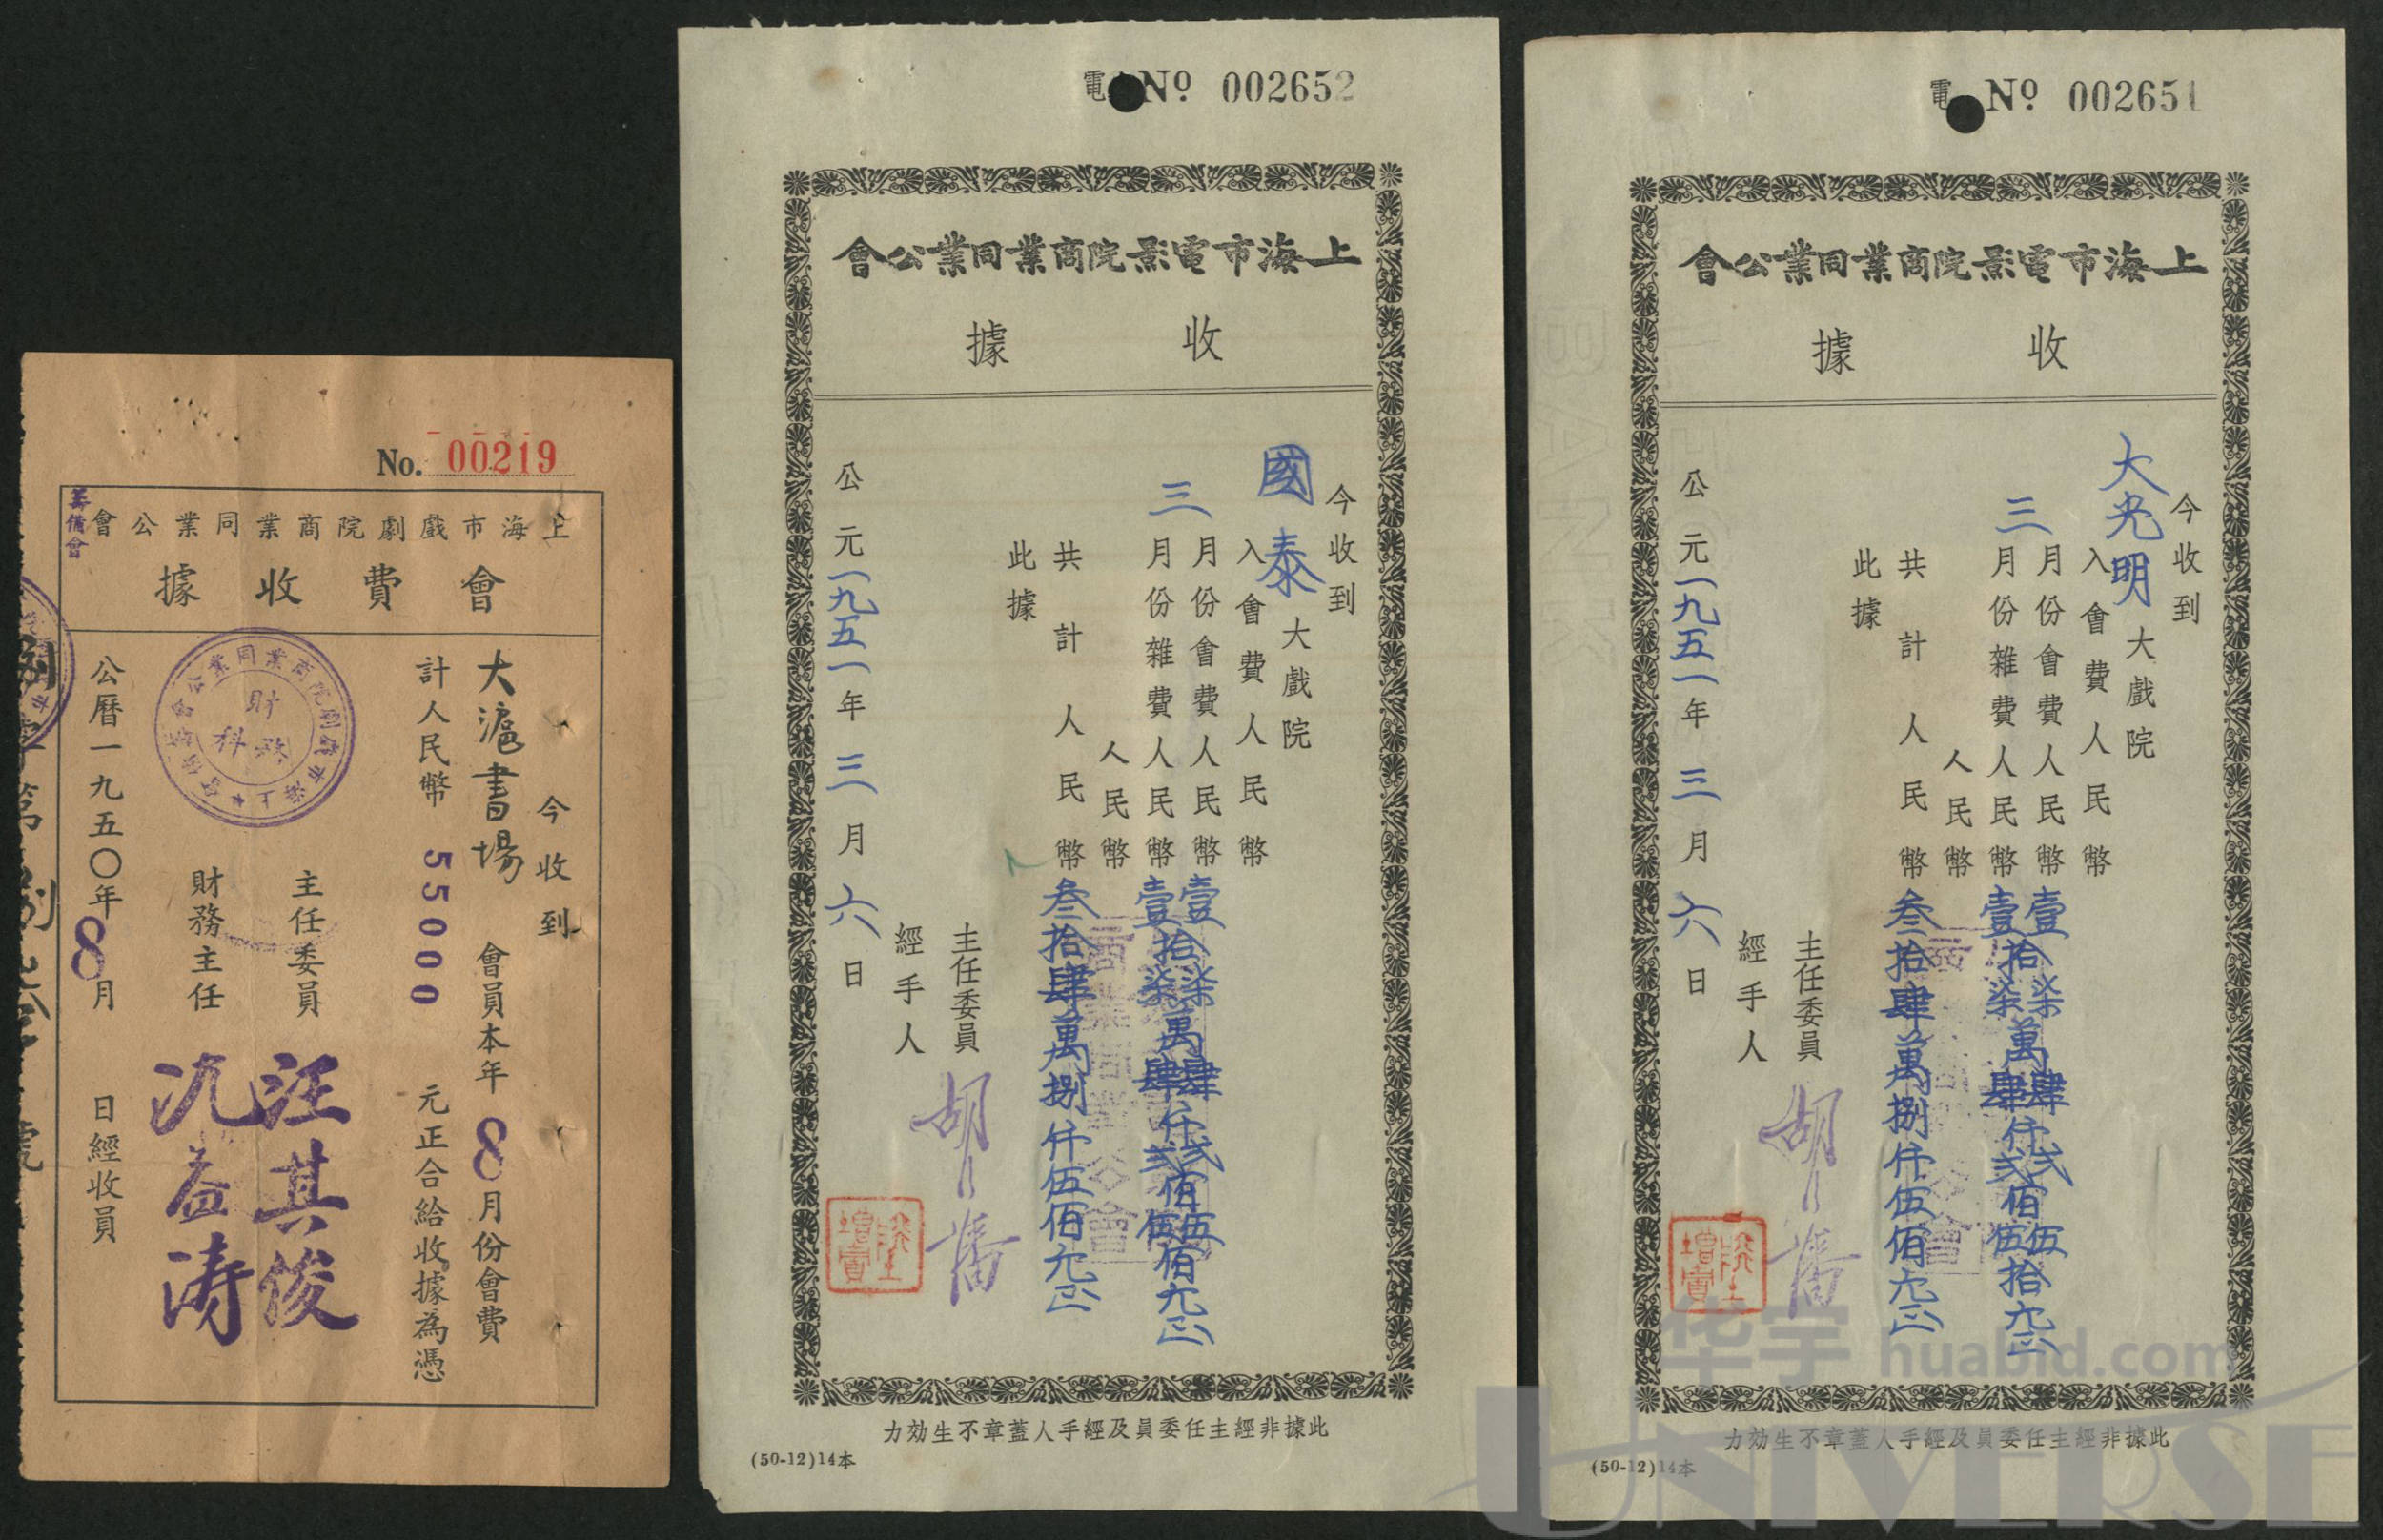 No. 00219
上海市戲劇院商業同業公會
籌備會
會費收據
今收到
大滬書場 會員本年8月份會費
計人民幣 55000 元正合給收據為憑
主任委員 汪其俊
財務主任 沈益濤
財務科
公曆一九五〇年8月 日經收員
電 No 002652
上海市電影院商業同業公會
收據
今收到
國泰大戲院
入會費人民幣
月份會費人民幣壹拾柒萬肆仟弍佰伍
三月份雜費人民幣壹拾柒萬肆仟弍佰伍拾元正
人民幣
共計人民幣叁拾肆萬捌仟伍佰元正
此據
主任委員 胡
經手人
公元一九五一年三月六日
此據非經主任委員及經手人蓋章不生効力
(50-12)14本
電 No 002651
上海市電影院商業同業公會
收據
今收到
大光明大戲院
入會費人民幣
月份會費人民幣壹拾柒萬肆仟弍佰伍
三月份雜費人民幣壹拾柒萬肆仟弍佰伍拾元正
人民幣
共計人民幣叁拾肆萬捌仟伍佰元正
此據
主任委員 胡
經手人
公元一九五一年三月六日
此據非經主任委員及經手人蓋章不生効力
(50-12)14本
华宇 huabid.com
UNIVERSE